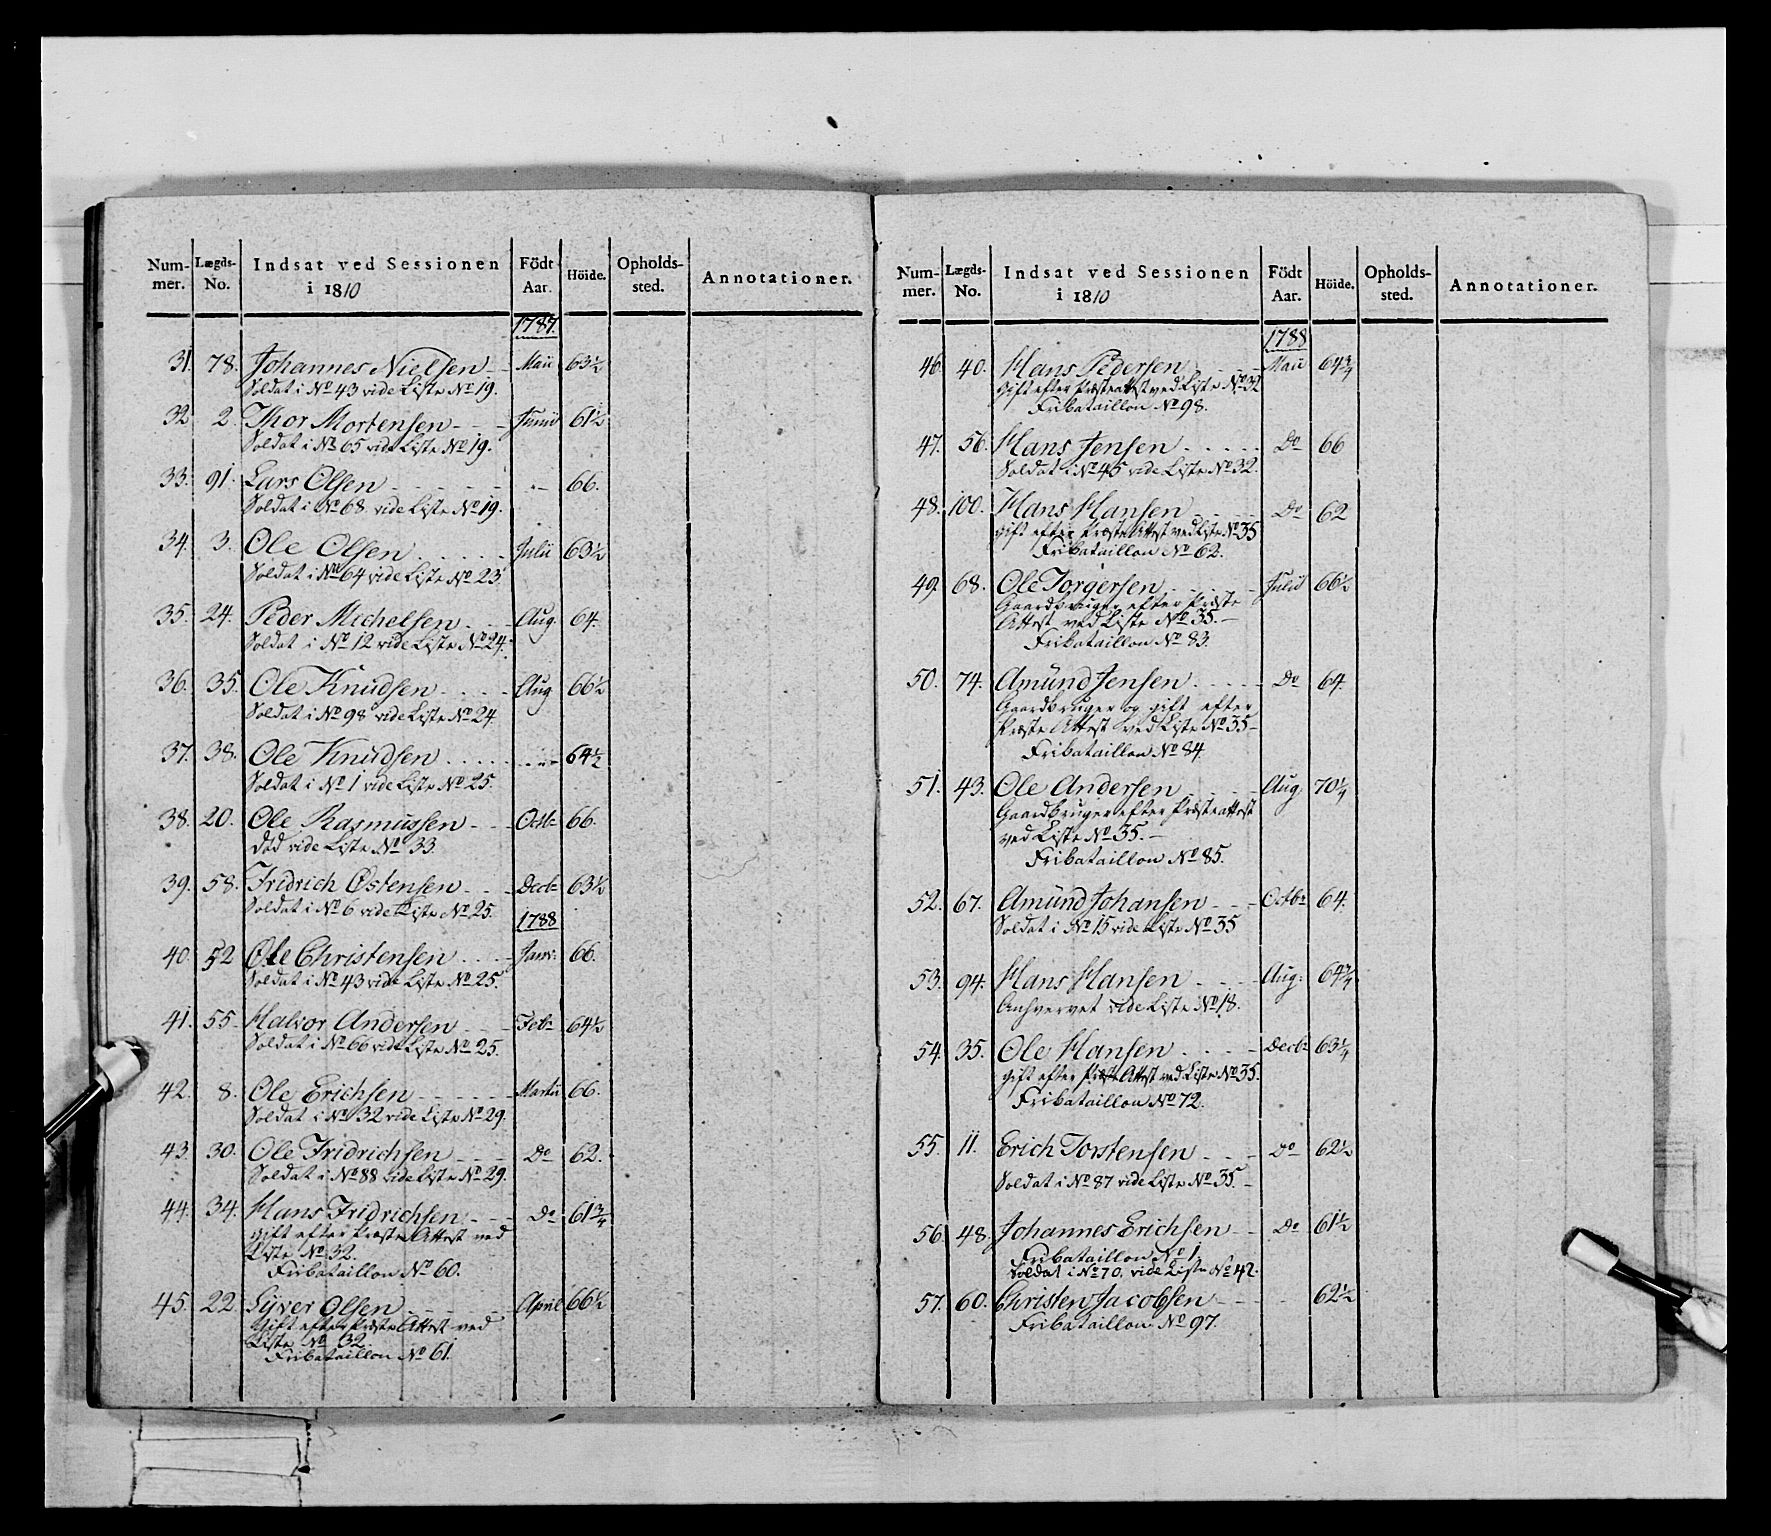 Num- Lægds- Indsat ved Sessionen Födt Höide. Opholds- Annotationer.
mer. No. i 1810 Aar. sted.
1787.
31. 78. Johannes Nielsen - - Maii 63½
Soldat i No 43 vide Liste No 19.
32 2. Thor Mortensen - - - Junii 61½
Soldat i No 65 vide Liste No 19.
33. 91. Lars Olsen - - - - - „ - 66.
Soldat i No 68. vide Liste No 19.
34. 3. Ole Olsen . . . . . Julii 63½
Soldat i No 64 vide Liste No 23
35. 24. Peder Michelsen . . . Aug. 64.
Soldat i No 12 vide Liste No 24.
36. 35. Ole Knudsen . . . . . Aug 66½
Soldat i No 98 vide Liste No 24.
37. 38. Ole Knudsen . . . . . . - „ - 64½
Soldat i No 1 vide Liste No 25.
38. 20. Ole Rasmussen - - - Octbr 66.
död vide Liste No 33.
39. 58. Fridrich Östensen - - - Decbr 63½
Soldat i No 6 vide Liste No 25.
1788
40. 52 Ole Christensen . . . - Janv: 66.
Soldat i No 43 vide Liste No 25.
41. 55 Halvor Andersen - - - Febr 64½
Soldat i No 66 vide Liste No 25.
42. 8. Ole Erichsen - - - - - Martii 66.
Soldat i No 32 vide Liste No 29.
43. 30. Ole Fridrichsen - - - Do 62.
Soldat i No 88 vide Liste No 29.
44. 34. Hans Fridrichsen - - - Do 61¾
gift efter Præste Attest ved
Liste No 32.
Fribataillon No 60.
45. 22. Syver Olsen . - - - - April 66½
Gift efter Præste Attest ved
Liste No 32
Fribataillon No 61.
Num- Lægds- Indsat ved Sessionen Födt Höide. Opholds- Annotationer.
mer. No. i 1810 Aar. sted.
1788
46. 40. Hans Pedersen - - - - Maii 64¾
Gift efter Præsteattest ved Liste No 32
Fribataillon No 98.
47. 56. Hans Jensen . . . . . Do 66
Soldat i No 45 vide Liste No 32.
48. 100. Hans Hansen - - - - Do 62
gift efter Præste Attest ved Liste No 35
Fribataillon No 62.
49. 68. Ole Torgersen - - - - Julii 66½
Gaardbruger efter Præste
Attest ved Liste No 35. -
Fribataillon No 83.
50. 74. Amünd Jensen . . . . . Do 64.
Gaardbruger og gift efter
Præste Attest ved Liste No 35 -
Fribataillon No 84.
51. 43. Ole Andersen - - - - Aug. 70¼
Gaardbruger efter Præsteattest
ved Liste No 35. -
Fribataillon No 85.
52. 67. Amünd Johansen - - - Octbr 64.
Soldat i No 15 vide Liste No 35
53. 94. Hans Hansen - - - - Aug: 64¾
Anhvervet vide Liste No 18.
54. 35. Ole Hansen . . . - - Decbr 63¼
gift efter Præste Attest ved Liste No 35.
Fribataillon No 72.
55. 11. Erich Torstensen . . . - Do 62½
Soldat i No 87 vide Liste No 35. -
56. 48. Johannes Erichsen - - Do 61½
Fribataillon No 1.
Soldat i No 70. vide Liste No 42.
57. 60. Christen Jacobsen - - - 62½
Fribataillon No 97.